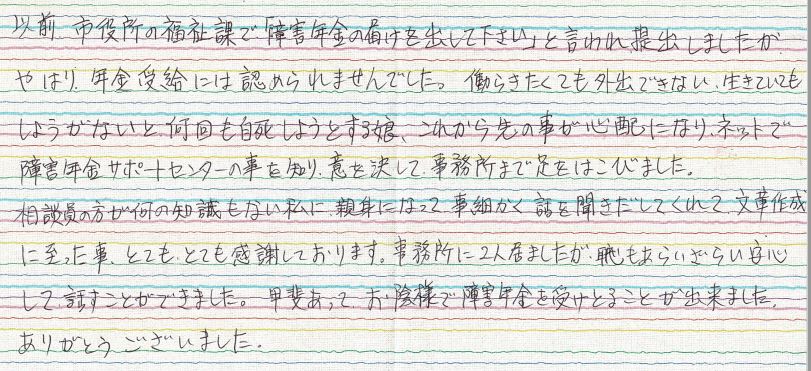 以前 市役所の福祉課で「障害年金の届けを出して下さい」と言われ提出しましたが
やはり、年金受給には認められませんでした。 働らきたくても外出できない、生きていても
しょうがないと、何回も自死しようとする娘、これから先の事が心配になり、ネットで
障害年金サポートセンターの事を知り、意を決して、事務所まで足をはこびました。
相談員の方が何の知識もない私に、親身になって、事細かく 話を聞きだしてくれて、文章作成
に至った事、とても、とても感謝しております。事務所に2人居ましたが、恥もあらいざらい安心
して話すことができました。 甲斐あって お陰様で障害年金を受けとることが出来ました。
ありがとう ございました。